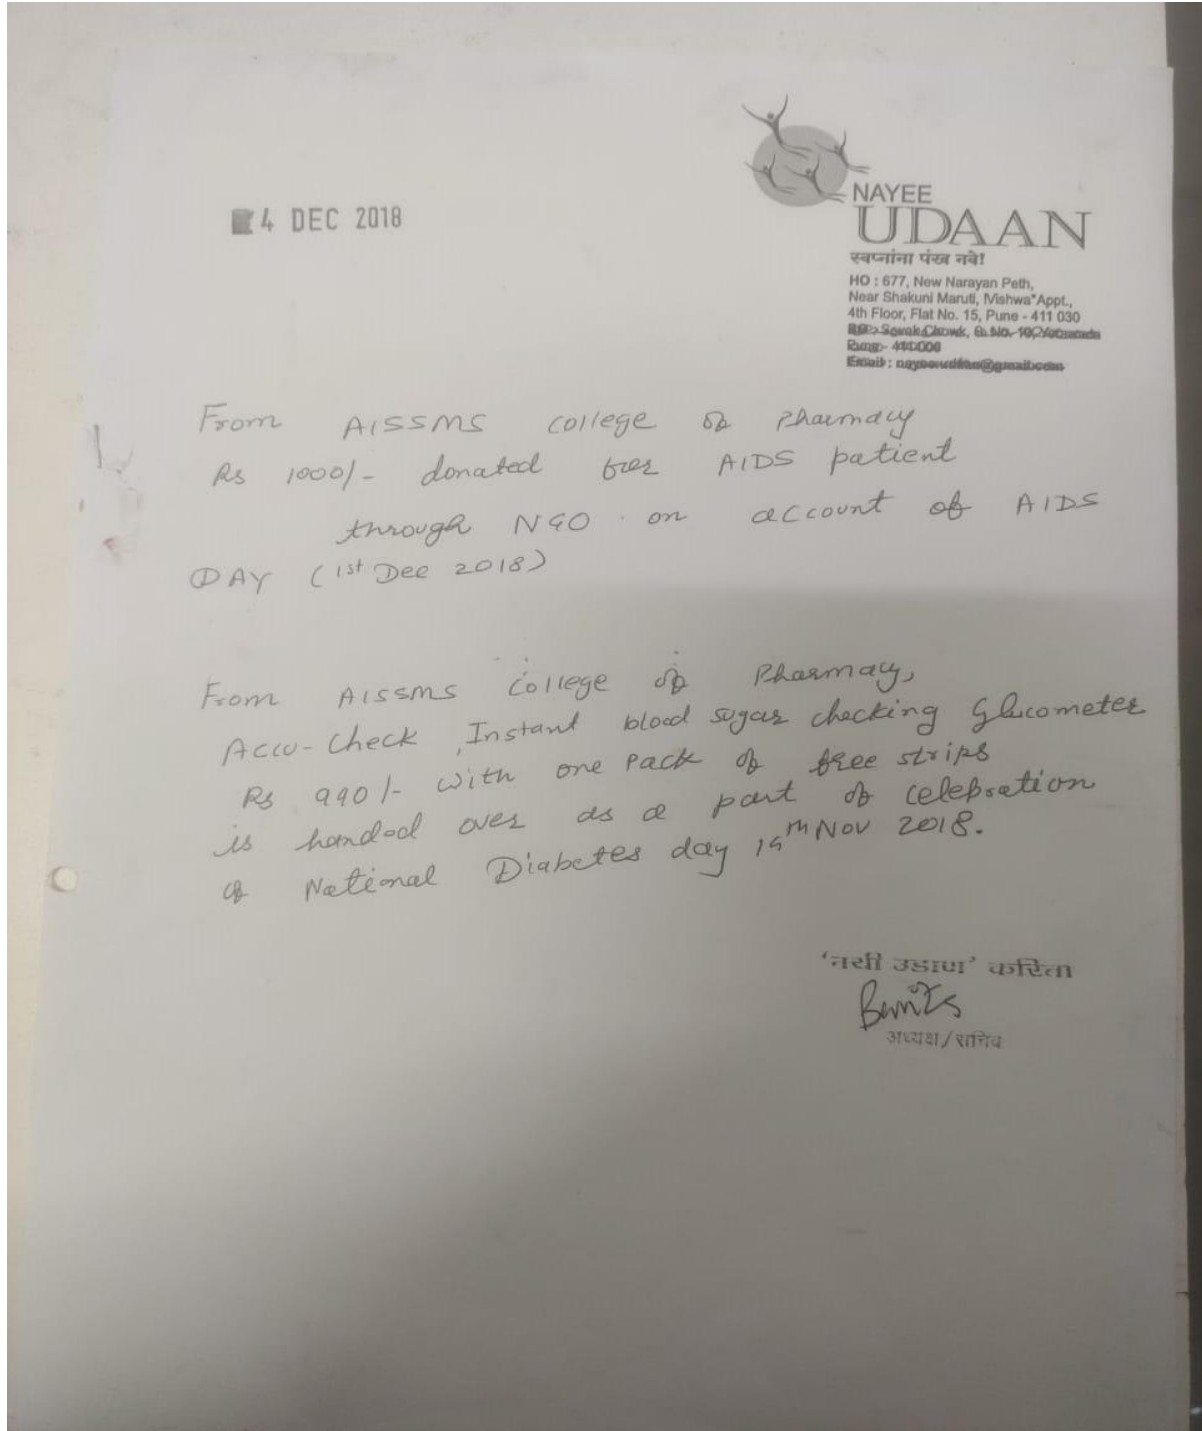 4 DEC 2018
NAYEE
UDAAN
स्वप्नांना पंख नवे!
HO : 677, New Narayan Peth,
Near Shakuni Maruti, "Vishwa" Appt.,
4th Floor, Flat No. 15, Pune - 411 030
Chowk,
411006
Email : nayee.udaan@gmail.com
From AISSMS College of Pharmacy
Rs 1000/- donated for AIDS patient
through NGO on account of AIDS
DAY (1st Dec 2018)
From AISSMS College of Pharmacy,
Accu-Check, Instant blood sugar checking Glucometer
Rs 990/- with one pack of free strips
is handed over as a part of celebration
of National Diabetes day Nov 2018.
‘नयी उडाण’ करिता
अध्यक्ष/सचिव